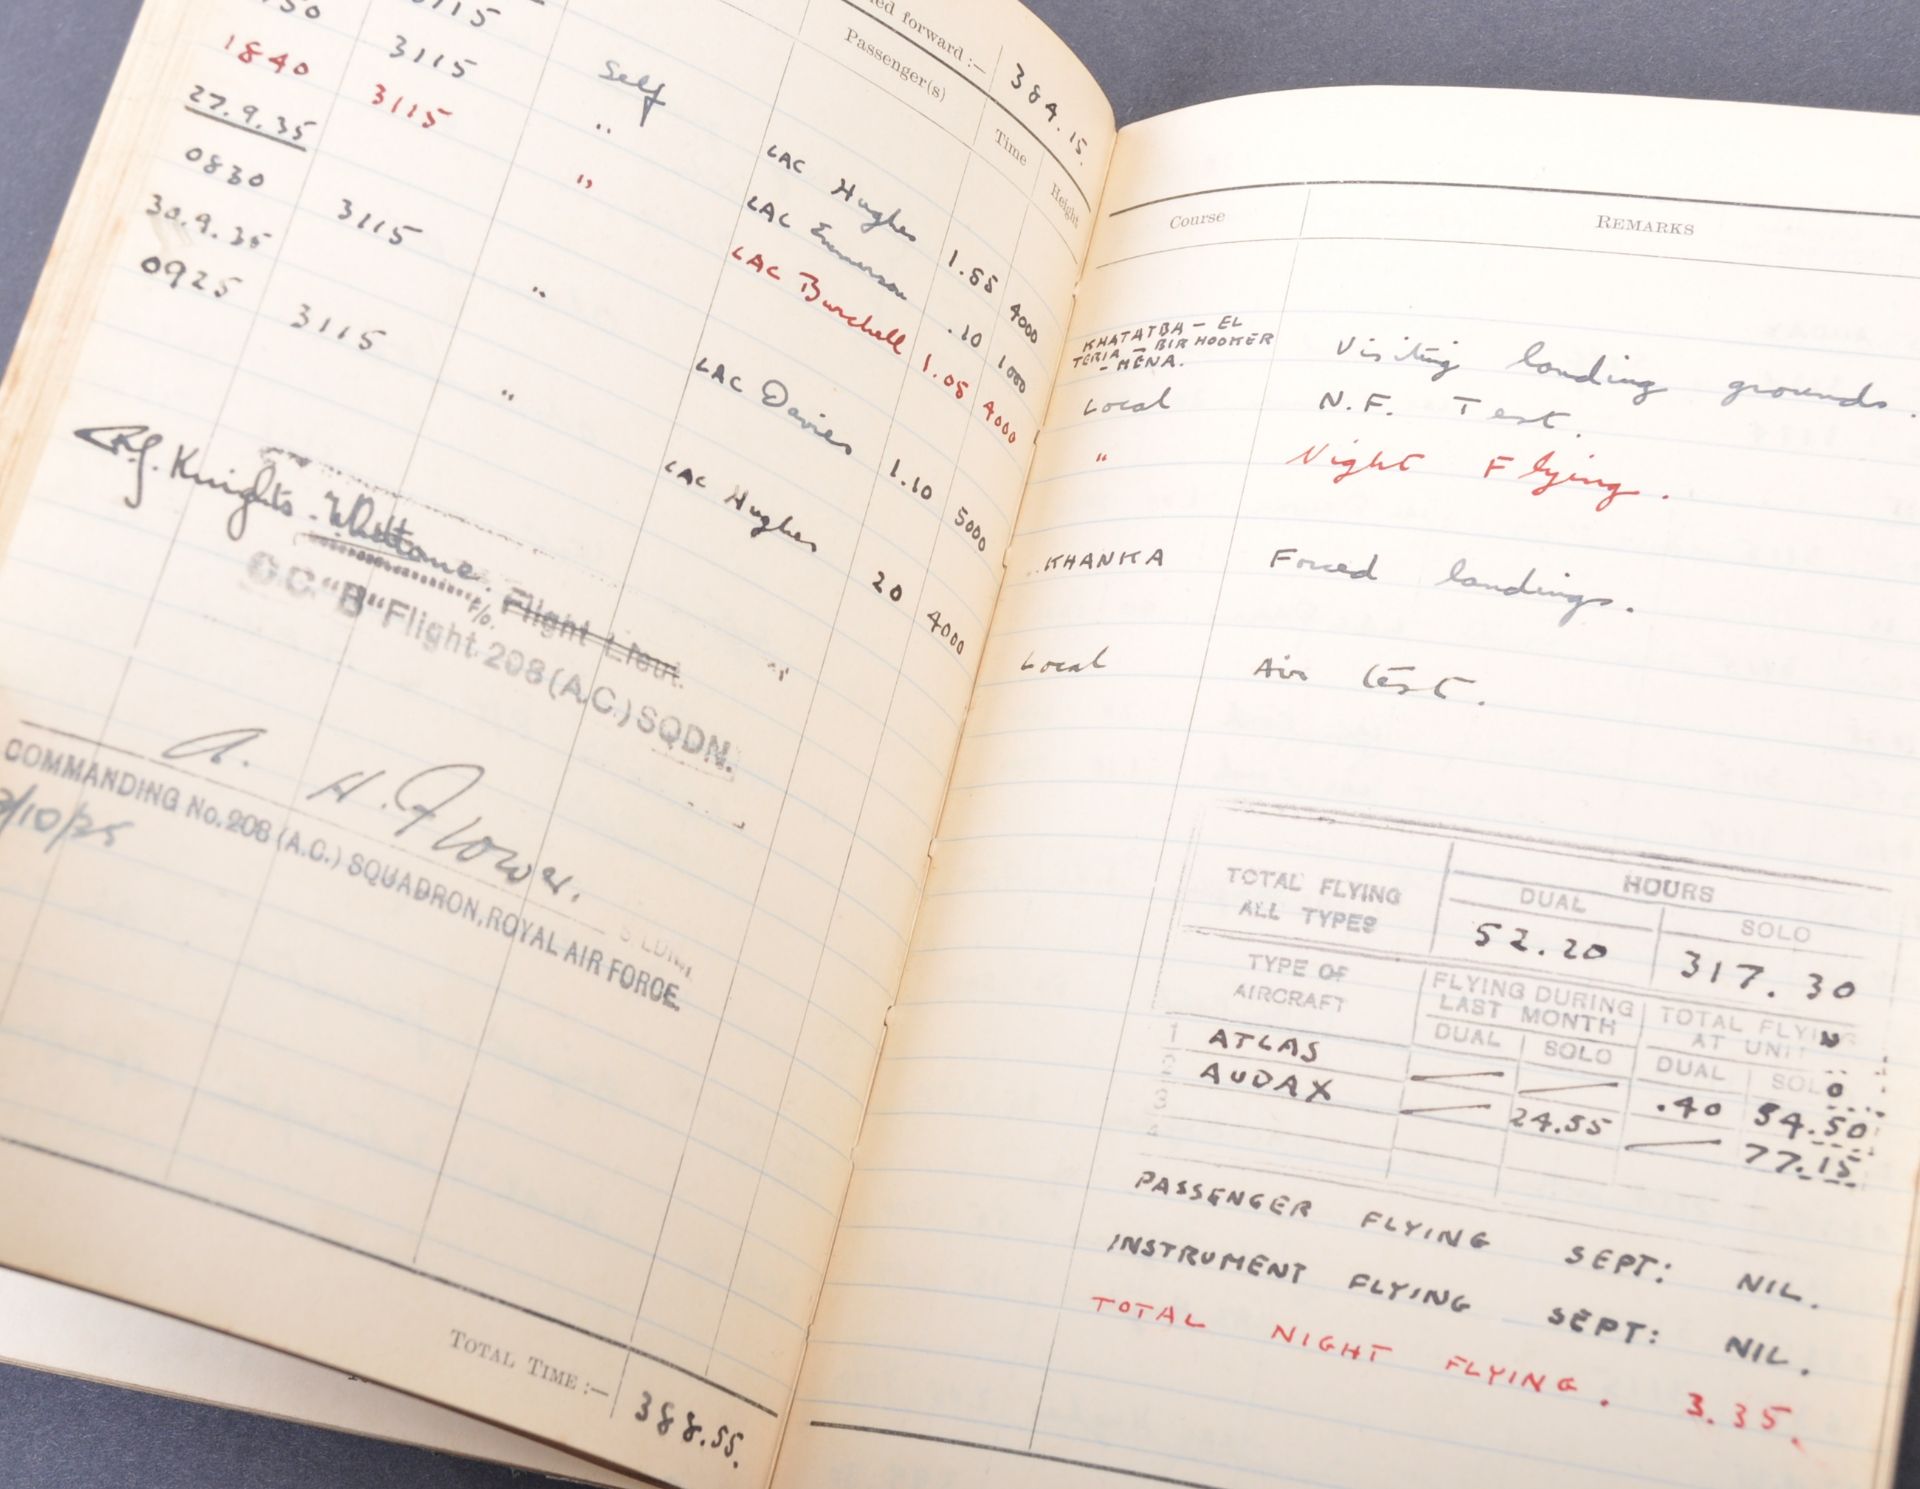 forward :— 384.15.
Passenger(s) Time Height
3115 Self LAC Hughes 1.55 4000
3115 " LAC Emmerson .10 1000
1840 3115 " LAC Burchell 1.05 4000
27.9.35
0830 3115 " LAC Davies 1.10 5000
30.9.35
0925 3115 " LAC Hughes 20 4000
Knights-Whittome.
F/O. Flight Lieut.
O C "B" Flight 208 (A.C.) SQDN.
A. H. Flower.
S LDR.
COMMANDING No. 208 (A.C.) SQUADRON, ROYAL AIR FORCE.
/10/35
TOTAL TIME :— 388.55.
Course REMARKS
KHATATBA – EL
TERIA – BIR HOOKER
– MENA. Visiting landing grounds.
Local N.F. Test.
" Night Flying.
KHANKA Forced landings.
Local Air test.
TOTAL FLYING
ALL TYPES
HOURS
DUAL SOLO
52.20 317.30
TYPE OF
AIRCRAFT
FLYING DURING
LAST MONTH
TOTAL FLYING
AT UNIT
DUAL SOLO DUAL SOLO
1 ATLAS — — .40 54.50
2 AUDAX — 24.55 — 77.15
3
4
PASSENGER FLYING SEPT: NIL.
INSTRUMENT FLYING SEPT: NIL.
TOTAL NIGHT FLYING. 3.35.